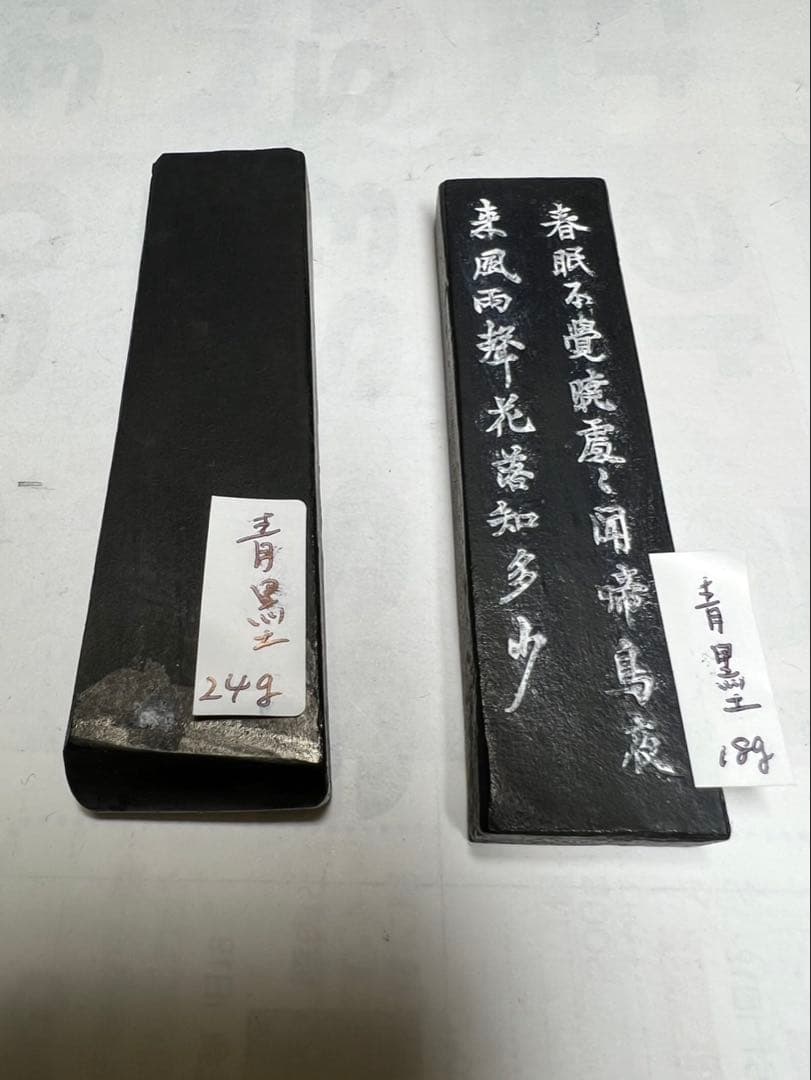 青墨
24g
春眠不覺曉處〻聞啼鳥夜
来風雨聲花落知多少
青墨
18g